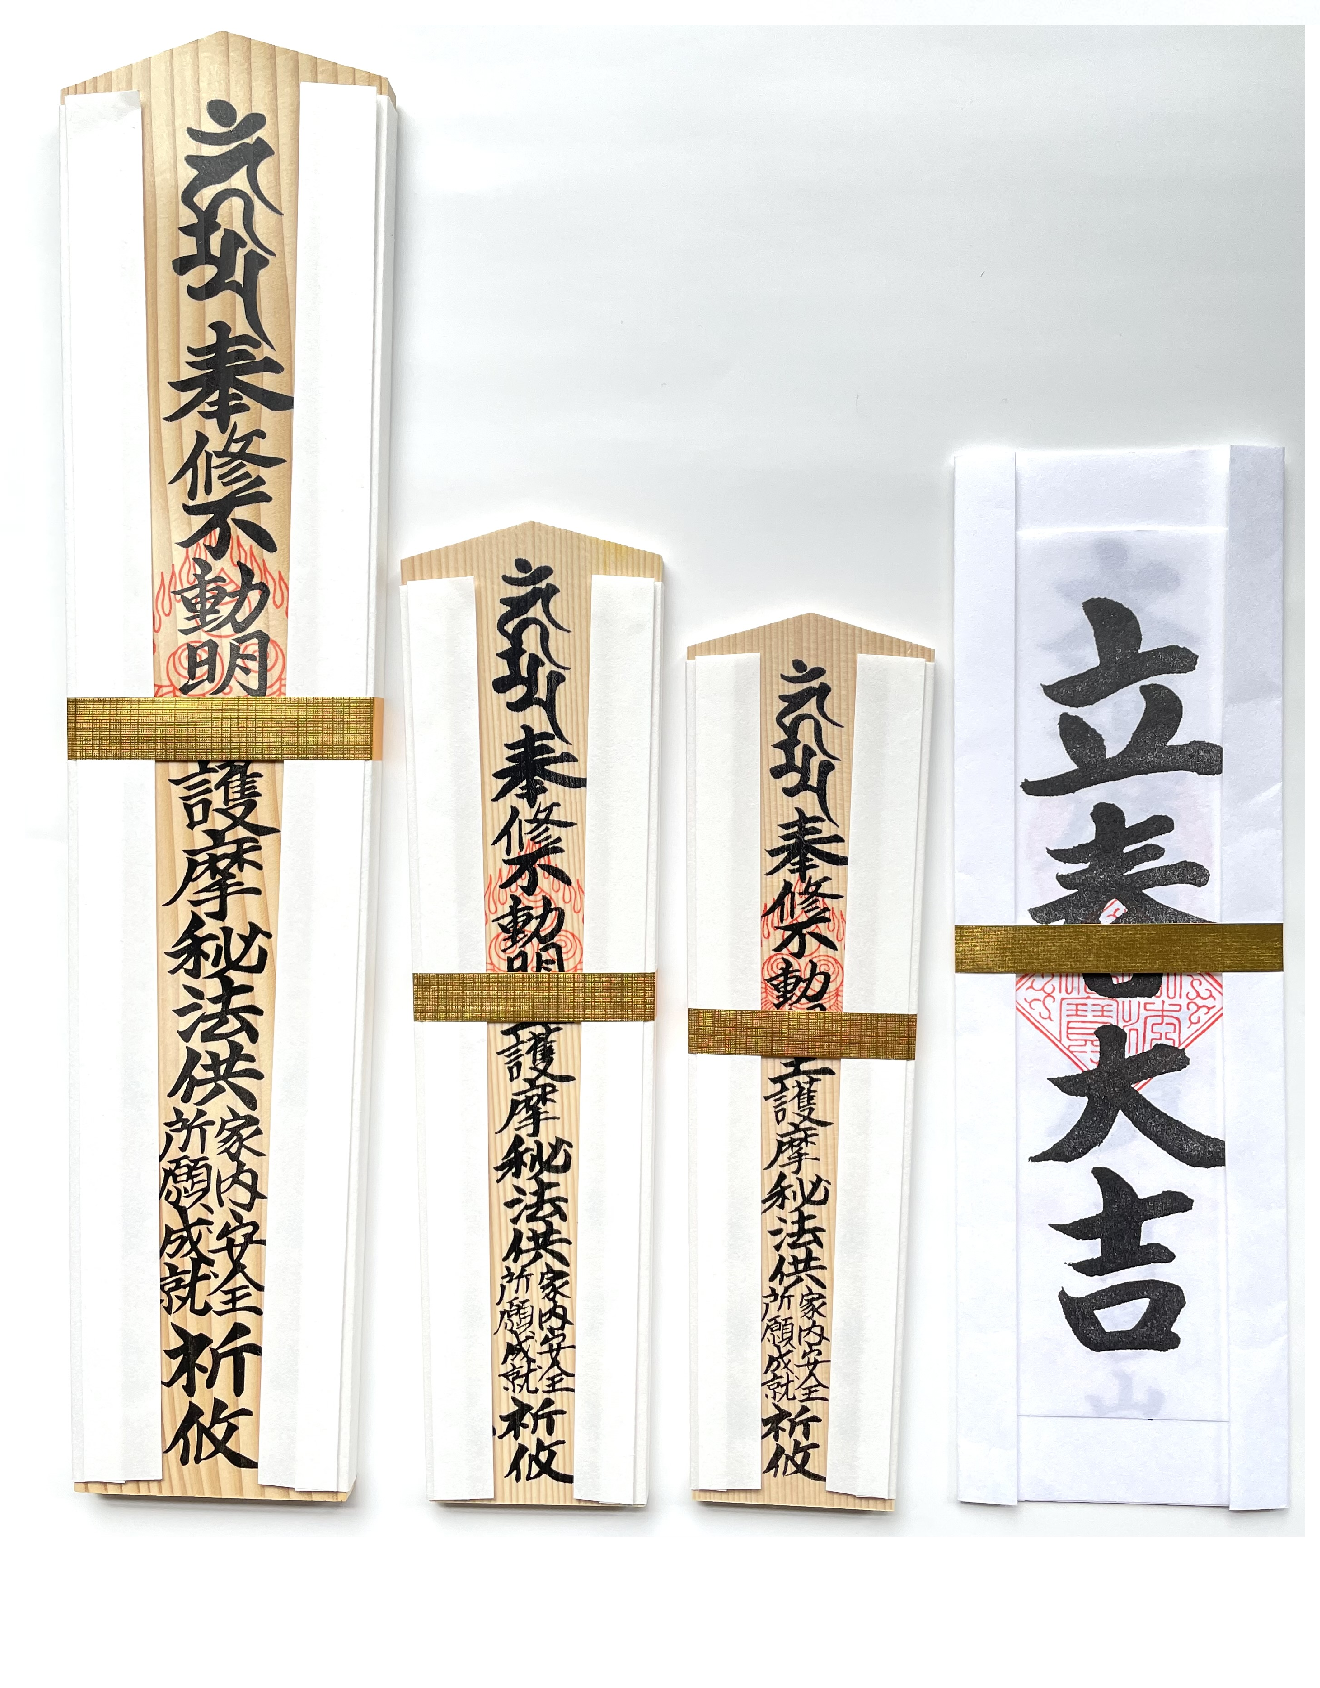 奉修不動明
護摩秘法供
家内安全
所願成就
祈攸
奉修不動
護摩秘法供
家内安全
所願成就
祈攸
奉修不動
護摩秘法供
家内安全
所願成就
祈攸
立春大吉